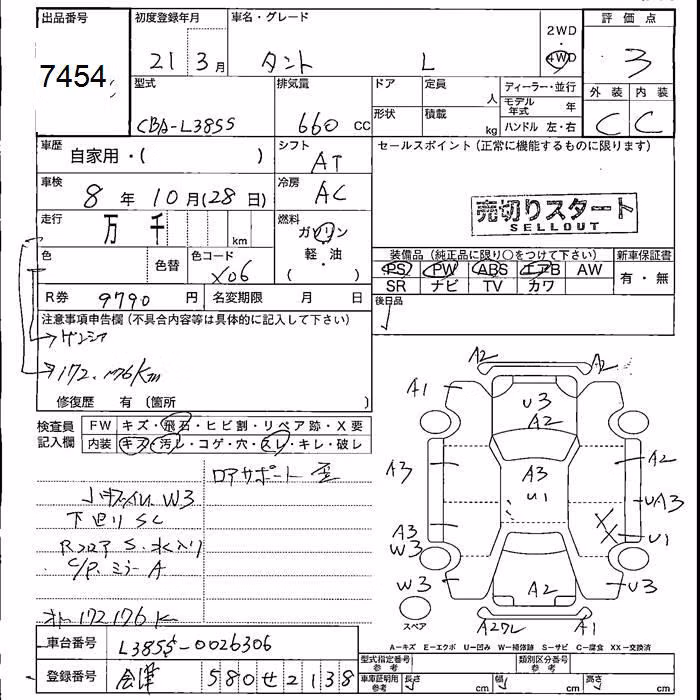 出品番号 初度登録年月 車名・グレード 2WD・4WD 評価点
7454 21 3月 タント L 3
型式 排気量 ドア 定員 人 ディーラー・並行 外装 内装
モデル年式 年
CBA-L385S 660 CC 形状 積載 kg ハンドル 左・右 C C
車歴 自家用・( ) シフト AT セールスポイント(正常に機能するものに限ります)
車検 8年 10月(28日) 冷房 AC
売切りスタート
SELLOUT
走行 万 千 km 燃料 ガソリン 軽・油 ( )
色 色替 色コード X06
装備品(純正品に限り○をつけて下さい) 新車保証書
PS PW ABS エアB AW 有・無
SR ナビ TV カワ
R券 9790 円 名変期限 月 日 後日品
注意事項申告欄(不具合内容等は具体的に記入して下さい)
172.176Km
修復歴 有 (箇所 )
検査員記入欄 FW キズ・飛石・ヒビ割・リペア跡・X要
内装 キズ・汚レ・コゲ・穴・スレ・キレ・破レ
ロアサポート 歪
W3
下廻り SC
Rフロア S.水入り
C/P.ミラーA
172176K
A2 A2
A1 U3
A2
A3 A3 A2
U1 UA3
A3
W3 U1
W3 A2 U3
スペア A2ワレ A1
A-キズ E-エクボ U-凹み W-補修跡 S-サビ C-腐食 XX-交換済
車台番号 L385S-0026306
型式指定番号 参考 類別区分番号 参考
登録番号 会津 580せ2138
車庫証明用 参考 長さ cm 幅 cm 高さ cm